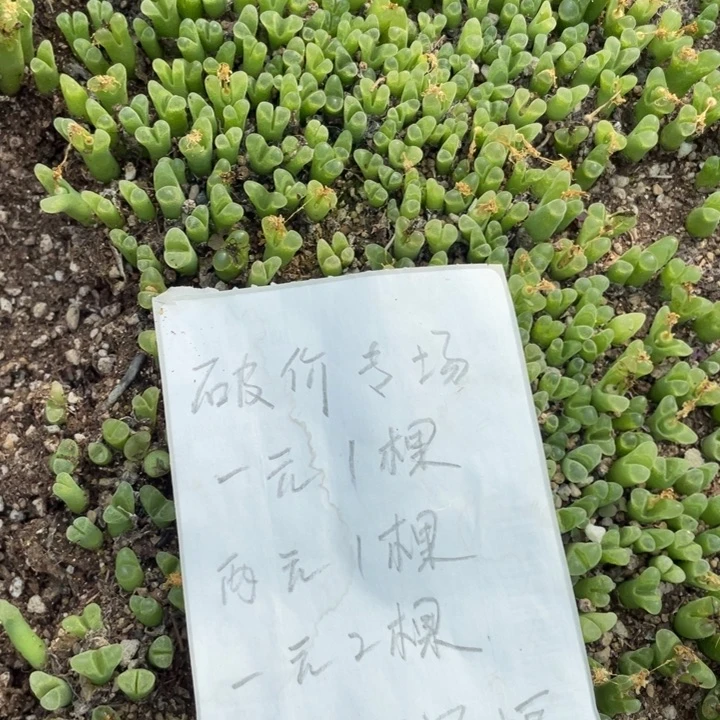 破价专场
一元1棵
两元1棵
一元2棵